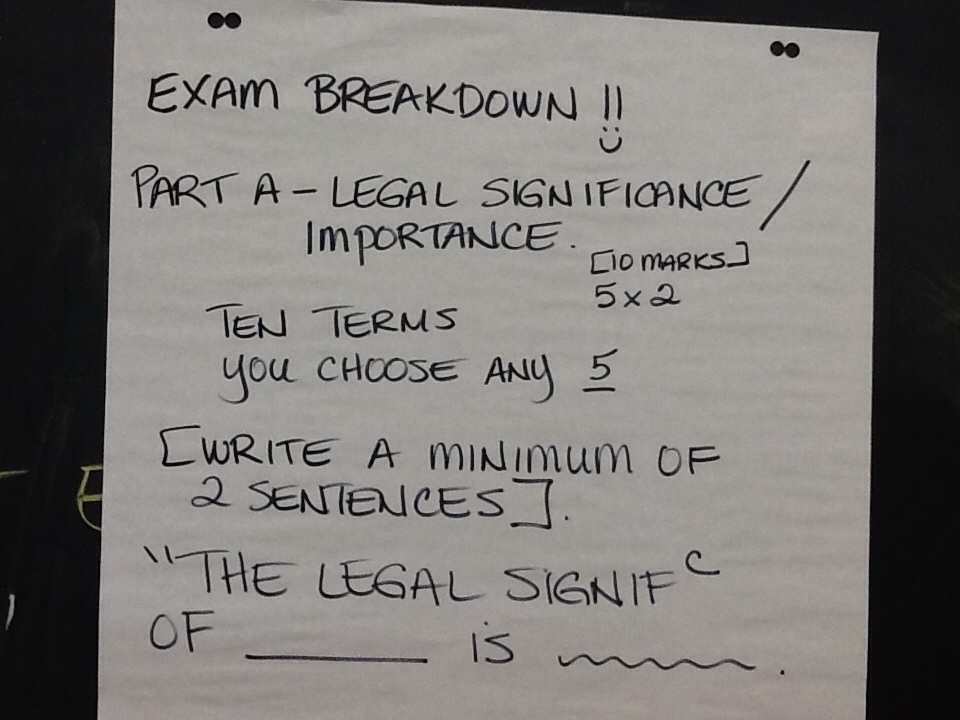 EXAM BREAKDOWN !!
PART A - LEGAL SIGNIFICANCE /
IMPORTANCE.
[10 MARKS]
5 x 2
TEN TERMS
YOU CHOOSE ANY 5
[WRITE A MINIMUM OF
2 SENTENCES].
"THE LEGAL SIGNIF C
OF ______ IS ~~~~.